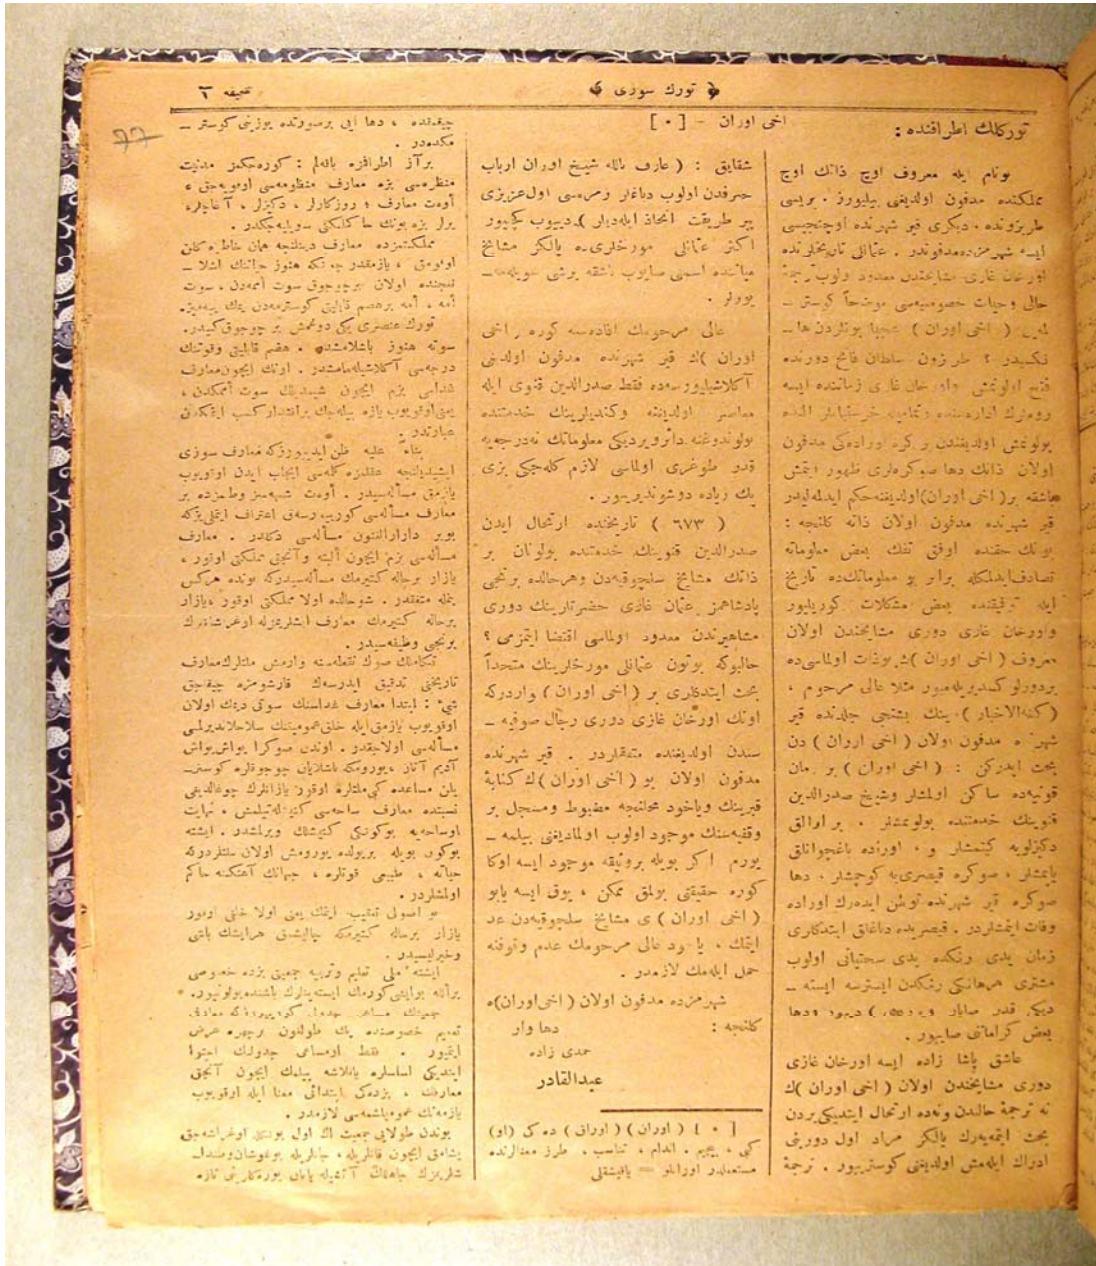 صحيفه ٣
تورك سوزى
77
توركلك اطرافنده :
اخى اوران - [٠]
بونام ايله معروف اوچ ذاتك اوچ
مملكتنده مدفون اولديغنى بيليورز . بريسى
طربزونده ، ديكرى قير شهرنده اوچنجيسى
ايسه شهرمزده مدفوندر . عثمانلى تاريخلرنده
اورخان غازى مشايخندن معدود اولوب ترجمۀ
حالى وحيات خصوصيه‌سى موضحاً كوستر ــ
( اخى اوران ) عجبا بونلردن ها ــ
نكيسيدر ؟ طربزون سلطان فاتح دورنده
فتح اولونمش واورخان غازى زماننده ايسه
روملرك اداره‌سنده وتماميله خرستيانلر النده
بولونمش اولديغندن بر كره اوراده‌كى مدفون
اولان ذاتك دها صوكره‌لرى ظهور ايتمش
باشقه بر ( اخى اوران ) اولديغنه حكم ايدلمه‌ليدر
قير شهرنده مدفون اولان ذاته كلنجه :
بونك حقنده اوفق تفك بعض معلوماته
تصادف ايدلمكله برابر بو معلوماتك‌ده تاريخ
ايله توفيقنده بعض مشكلات كوريليور
واورخان غازى دورى مشايخندن اولان
معروف ( اخى اوران ) شو ذات اولماسى‌ده
بردورلو كسديريله‌ميور مثلا عالى مرحوم ،
( كنه‌الاخبار ) ينك بشنجى جلدنده قير
شهرنده مدفون اولان ( اخى اوران ) دن
بحث ايدركن : ( اخى اوران ) بر زمان
قونيه‌ده ساكن اولمشلر وشيخ صدرالدين
قنوينك خدمتنده بولونمشلر . بر ارالق
دكزلويه كيتمشلر و ، اوراده باغچوانلق
ياپمشلر ، صوكره قيصرى‌يه كوچمشلر ، دها
صوكره قير شهرنده توطن ايده‌رك اوراده
وفات ايتمشلردر . قيصريده دباغلق ايتدكلرى
زمان يدى رنكده يدى سختيانى اولوب
مشترى هرهانكى رنكدن ايسترسه ايسته ــ
ديكى قدر صاتار ( ديور ودها
بعض كراماتنى صايبور .
عاشق پاشا زاده ايسه اورخان غازى
دورى مشايخندن اولان ( اخى اوران )ك
نه ترجمۀ حالندن ونه‌ده ارتحال ايتديكى يردن
بحث ايتميه‌رك يالكز مراد اول دورينى
ادراك ايله‌مش اولديغنى كوستريبور . ترجمۀ
شقايق : ( عارف بالله شيخ اوران ارباب
حرفدن اولوب دباغلر زمره‌سى اول عزيزى
پير طريقت اتخاذ ايله‌ديلر ) . ديبوب كچيبور
اكثر عثمانلى مورخلرى‌ده يالكز مشايخ
مياننده اسمنى صايوب باشقه برشى سويله‌مه ــ
يورلر .
عالى مرحومك افاده‌سنه كوره ( اخى
اوران )ك قير شهرنده مدفون اولديغى
آكلاشيليورسه‌ده فقط صدرالدين قنوى ايله
معاصر اولديغنه وكنديلرينك خدمتنده
بولوندوغنه دائر ويرديكى معلوماتك نه‌درجه‌يه
قدر طوغرى اولماسى لازم كله‌جكى بزى
پك زياده دوشونديريبور .
( ٦٧٣ ) تاريخنده ارتحال ايدن
صدرالدين قنوينك خدمتنده بولونان بر
ذاتك مشايخ سلجوقيه‌دن وهرحالده برنجى
پادشاهمز عثمان غازى حضرتلرينك دورى
مشاهيرندن معدود اولماسى اقتضا ايتمزمى ؟
حالبوكه بوتون عثمانلى مورخلرينك متحداً
بحث ايتدكلرى بر ( اخى اوران ) واردركه
اونك اورخان غازى دورى رجال صوفيه ــ
سندن اولديغنده متفقلردر . قير شهرنده
مدفون اولان بو ( اخى اوران )ك كتابۀ
قبرينك وياخود محلنجه مضبوط ومسجل بر
وقفيه‌سنك موجود اولوب اولماديغنى بيلمه ــ
يورم . اكر بويله بروثيقه موجود ايسه اوكا
كوره حقيقتى بولمق ممكن ، يوق ايسه يابو
( اخى اوران ) ى مشايخ سلجوقيه‌دن عد
ايتمك ، ياخود عالى مرحومك عدم وقوفنه
حمل ايله‌مك لازمدر .
شهرمزده مدفون اولان ( اخى اوران )ه
كلنجه : دها وار
حمدى زاده
عبدالقادر
[٠] ( اوران ) ( اوراق ) ده‌كى (او)
كبى ، بيچيم ، اندام ، تناسب ، طرز معنالرنده
مستعملدر اورانلو = ياقيشقلى
چيقدقده ، دها ايى برصورتده يوزينى كوستر ــ
مكده‌در .
برآز اطرافزه باقه‌لم : كوره‌جكمز مدنيت
منظره‌سى بزه معارف منظومه‌سى اوقويه‌جق ،
أوت معارف ؛ روزكارلر ، دكزلر ، آغاجلر ،
يرلر بزه بونك حاكملكنى سويليه‌جكدر .
مملكتمزده معارف دينلنجه همان خاطره كلن
اوقومق ، يازمقدر چونكه هنوز حياتك
اولان برچوجوق سوت آنه‌دن ، سوت
أمه ، أمه برهضم قابليتى كوسترمه‌دن يمك ييه‌مز .
تورك عنصرى يكى دوغمش بر چوجوق كبيدر .
سوته هنوز باشلامشدر . هضم قابليتى وقوتنك
درجه‌سى آكلاشيله‌مامشدر . اونك ايچون معارف
غداسى بزم ايچون شيمديلك سوت أممكدن ،
يعنى اوقويوب يازه بيله‌جك براقتدار كسب ايتمكدن
عبارتدر .
بناءً عليه ظن ايديبورزكه معارف سوزى
ايشيديلنجه عقلمزه كلمه‌سى ايجاب ايدن اوقويوب
يازمق مسأله‌سيدر . أوت شبهه‌سز وطنمزده بر
معارف مسأله‌سى كوريبورسه‌ق اعتراف ايتملى‌يزكه
بوبر دارالفنون مسأله‌سى دكلدر . معارف
مسأله‌سى بزم ايچون ألبته وآنجق مملكتى اوقور ،
يازار برحاله كتيرمك مسأله‌سيدركه بونده هركس
بنمله متفقدر . شوحالده اولا مملكتى اوقور ، يازار
برحاله كتيرمك معارف ايشلريمزله اوغراشانلرك
برنجى وظيفه‌سيدر .
تكاملك صوك نقطه‌سنه وارمش ملتلرك معارف
تاريخنى تدقيق ايدرسه‌ك قارشومزه چيقه‌جق
شى : ابتدا معارف غداسنك سوتى ديمك اولان
اوقويوب يازمق ايله خلق عموميتنك سلاحلانديرلمسى
مسأله‌سى اولاجقدر . اوندن صوكرا يواش يواش
آديم آتار ، يورومكه باشلايان چوجوقلره كوستر ــ
يلن مساعده كبى ملتلره اوقور يازانلرك چوغالديغى
نسبتده معارف ساحه‌سى كنيشله‌تيلمش ، نهايت
اوساحه‌يه بوكونكى كنيشلك ويرلمشدر . ايشته
بوكون بويله بريولده يورومش اولان ملتلردركه
حياته ، طبيعى قوتلره ، جهانك آهنكنه حاكم
اولمشلردر .
بو اصولى تعقيب ايتمك يعنى اولا خلقى اوقور
يازار برحاله كتيرمكه چاليشمق هرايشك باشى
وخيرليسيدر .
ايشته ملى تعليم وتربيه جمعيتى بزده خصوصى
برألله بوايشى كورمك ايسته‌ينلرك باشنده بولونيور .
تعميم خصوصنده پك طولغون برچهره عرض
ايتميور . فقط
ايتديكى اساسلره ياقلاشه بيلمك ايچون آنجق
معارفك ، بزده‌كى ابتدائى معنا ايله اوقويوب
يازمه‌نك عمومياشمه‌سى لازمدر .
بوندن طولايى جمعيت اك اول اوغراشه‌جق
يشامق ايچون قانلريله ، جانلريله بوغوشان
آتشيله يانان يورەكلرينى تازه